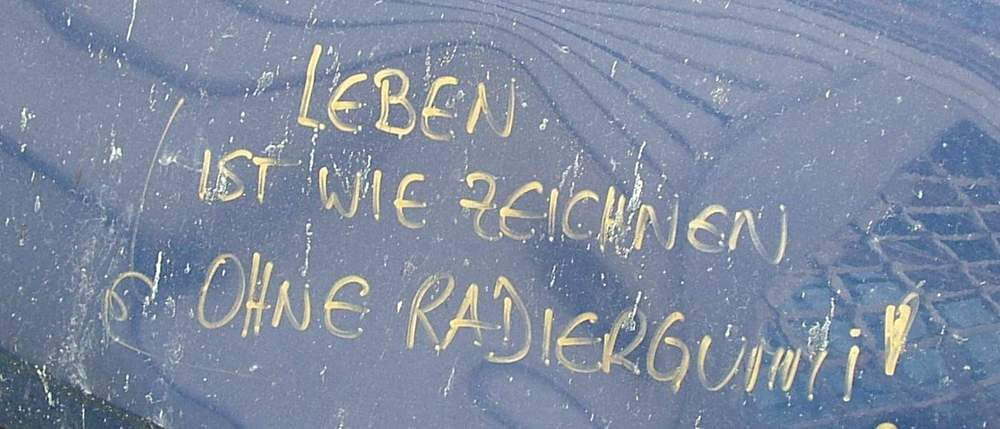 LEBEN
IST WIE ZEICHNEN
OHNE RADIERGUMMi!